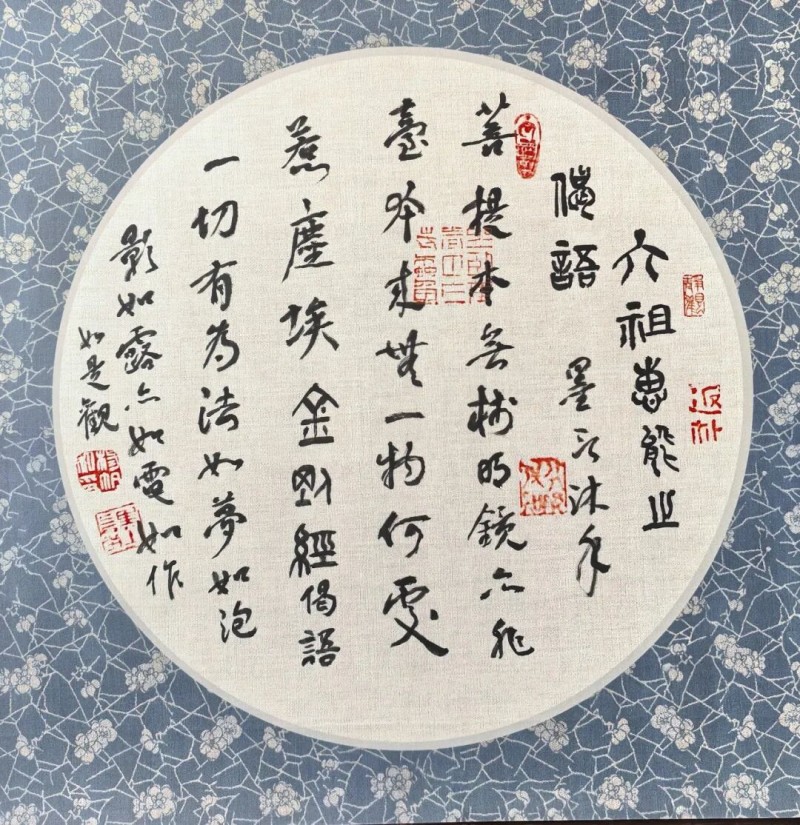 六祖惠能之
偈語 墨沐手
菩提本無樹明鏡亦非
臺本來無一物何處
惹塵埃金剛經偈語
一切有為法如夢如泡
影如露亦如電如作
如是觀